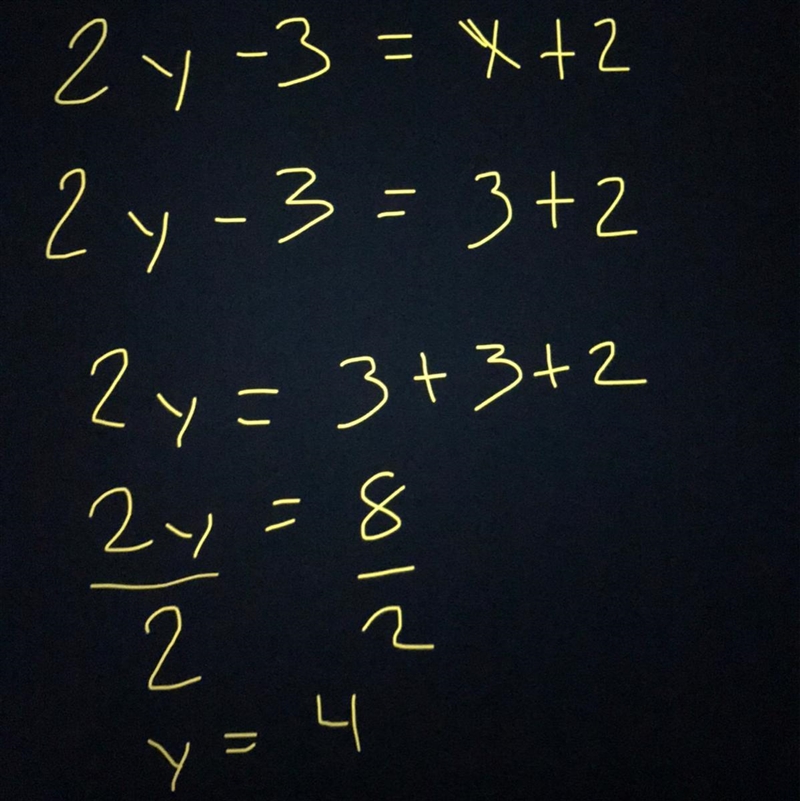 2y - 3 = x + 2
2y - 3 = 3 + 2
2y = 3 + 3 + 2
2y/2 = 8/2
y = 4